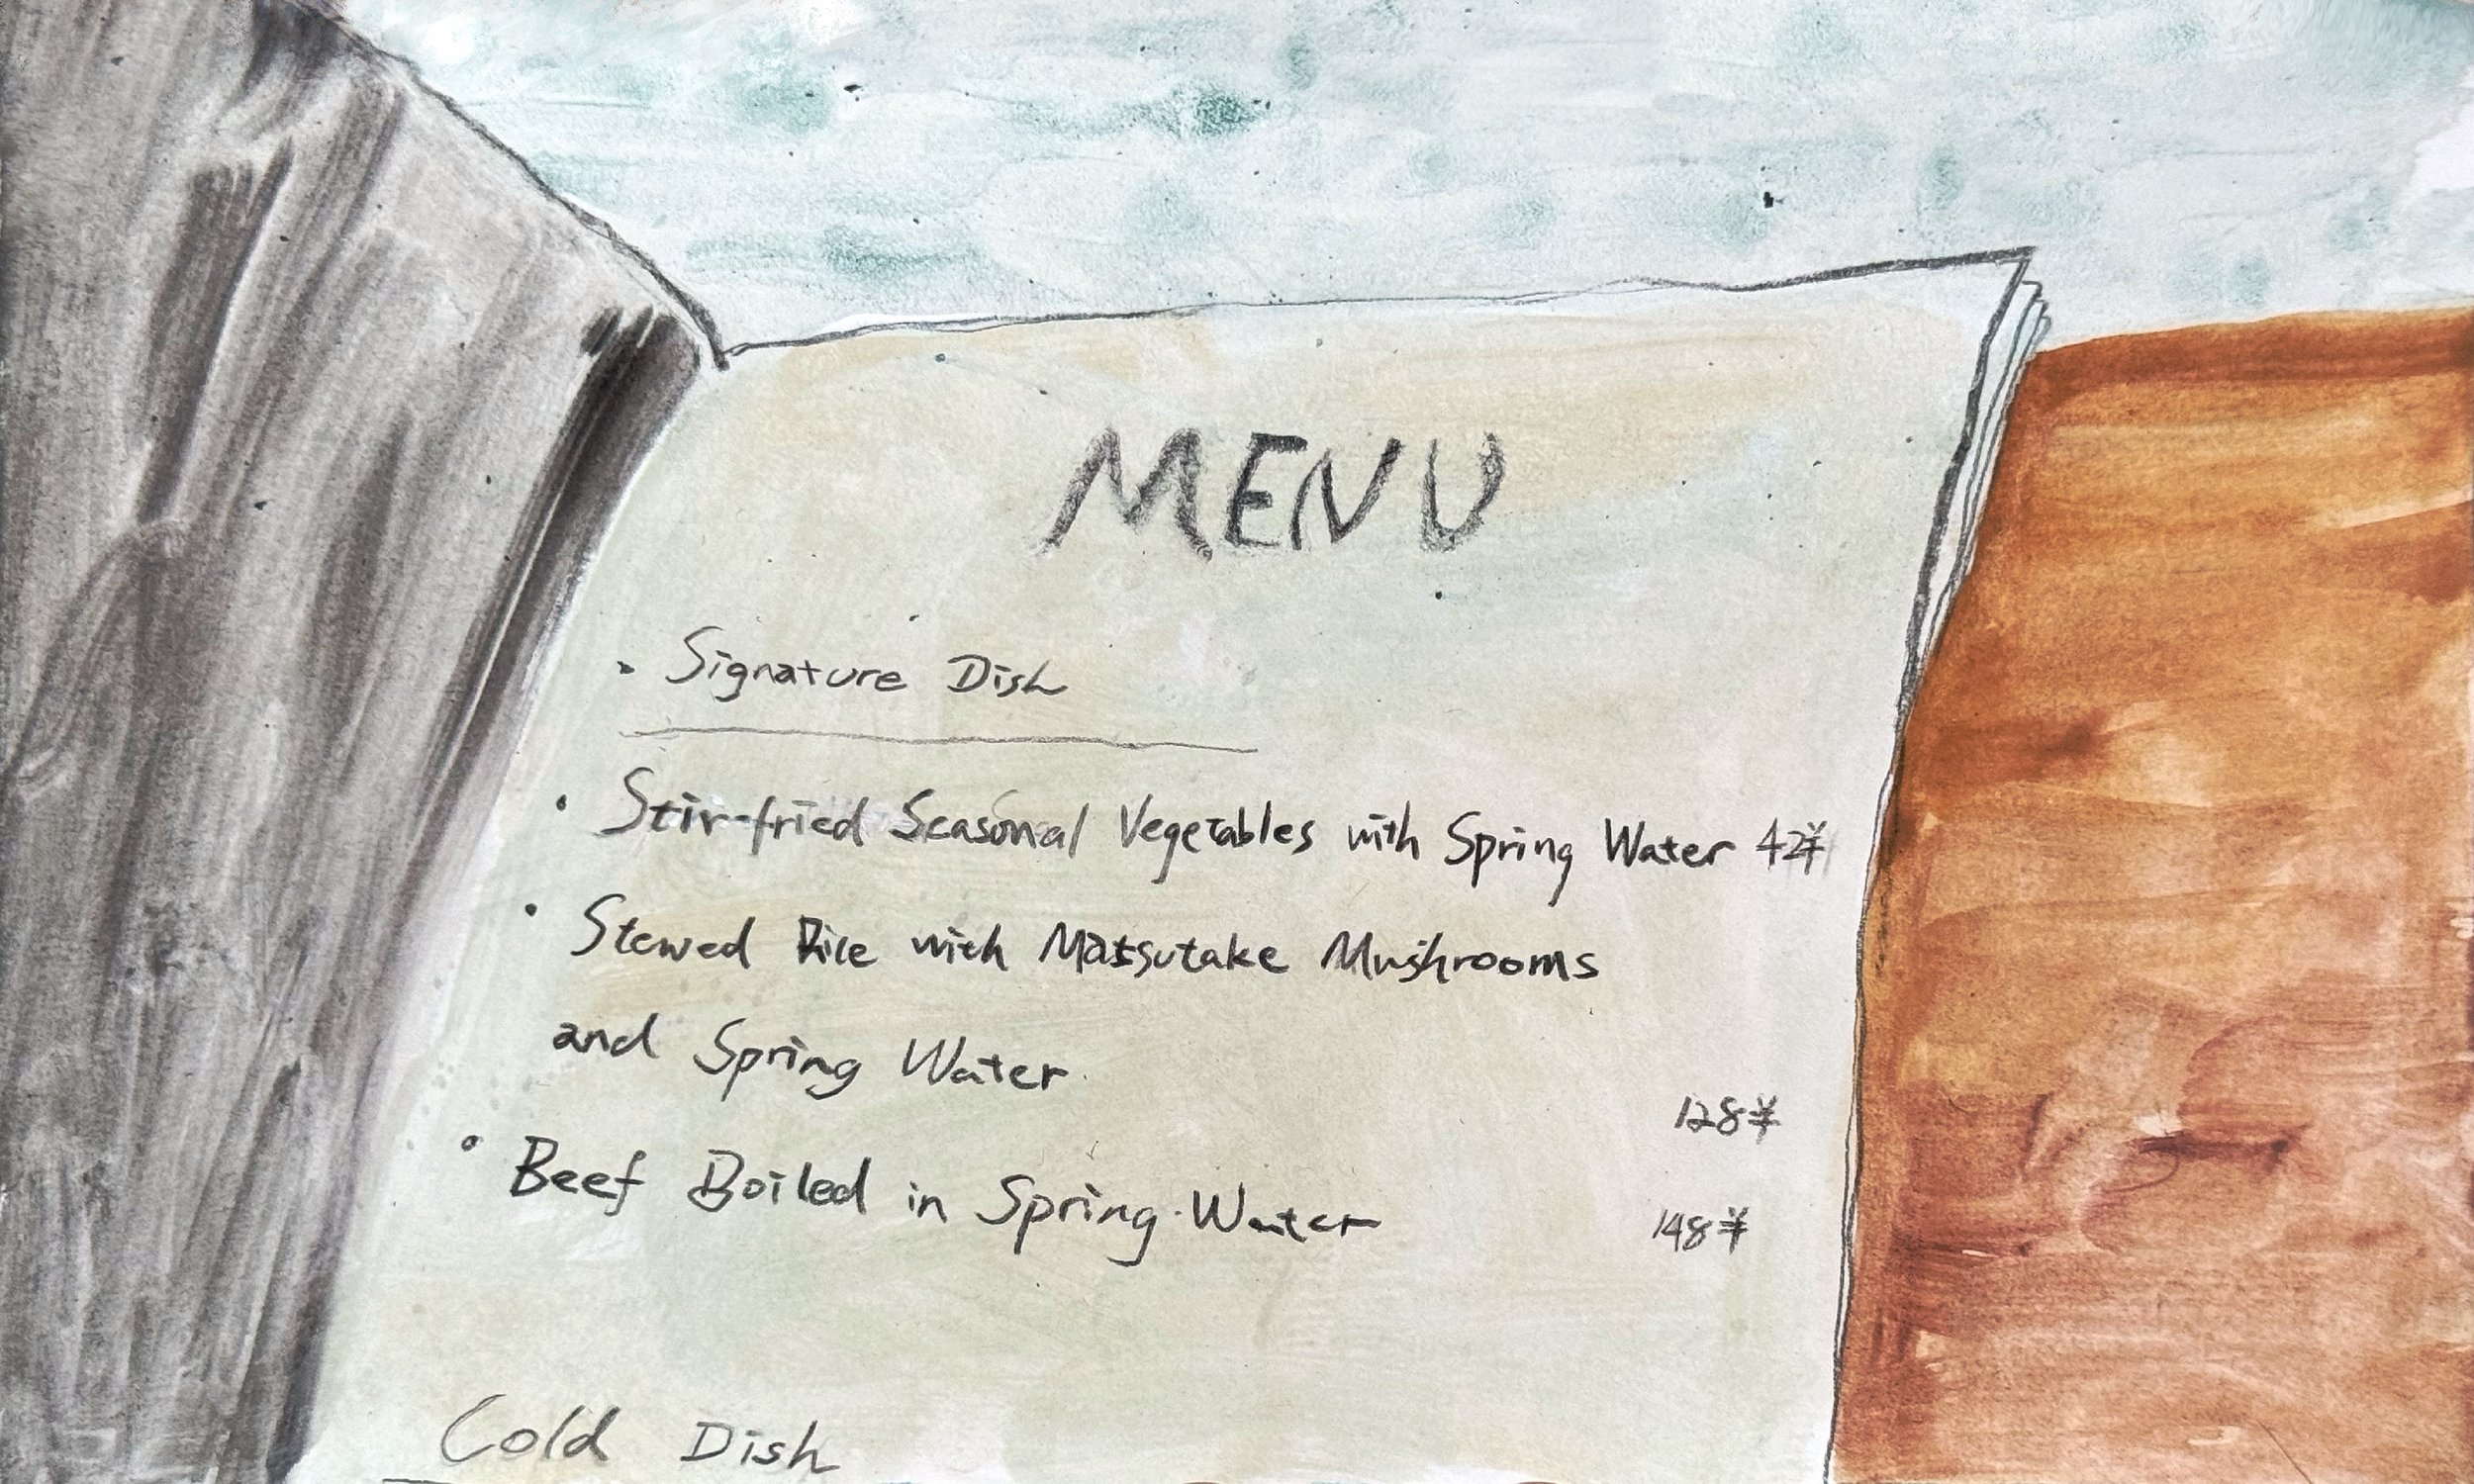 MENU
· Signature Dish
· Stir-fried Seasonal Vegetables with Spring Water 42¥
· Stewed Rice with Matsutake Mushrooms
and Spring Water
128¥
· Beef Boiled in Spring Water 148¥
Cold Dish